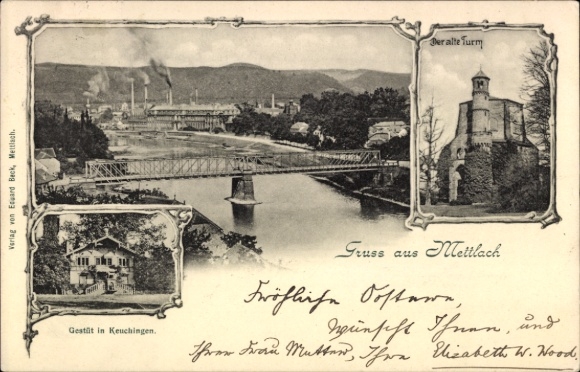 Der alte Turm
Verlag von Eduard Beck, Mettlach.
Gruss aus Mettlach
Gestüt in Keuchingen.
Fröhliche Ostern,
wünscht Ihnen, und
Ihrer Frau Mutter, Ihre Elizabeth W. Wood.